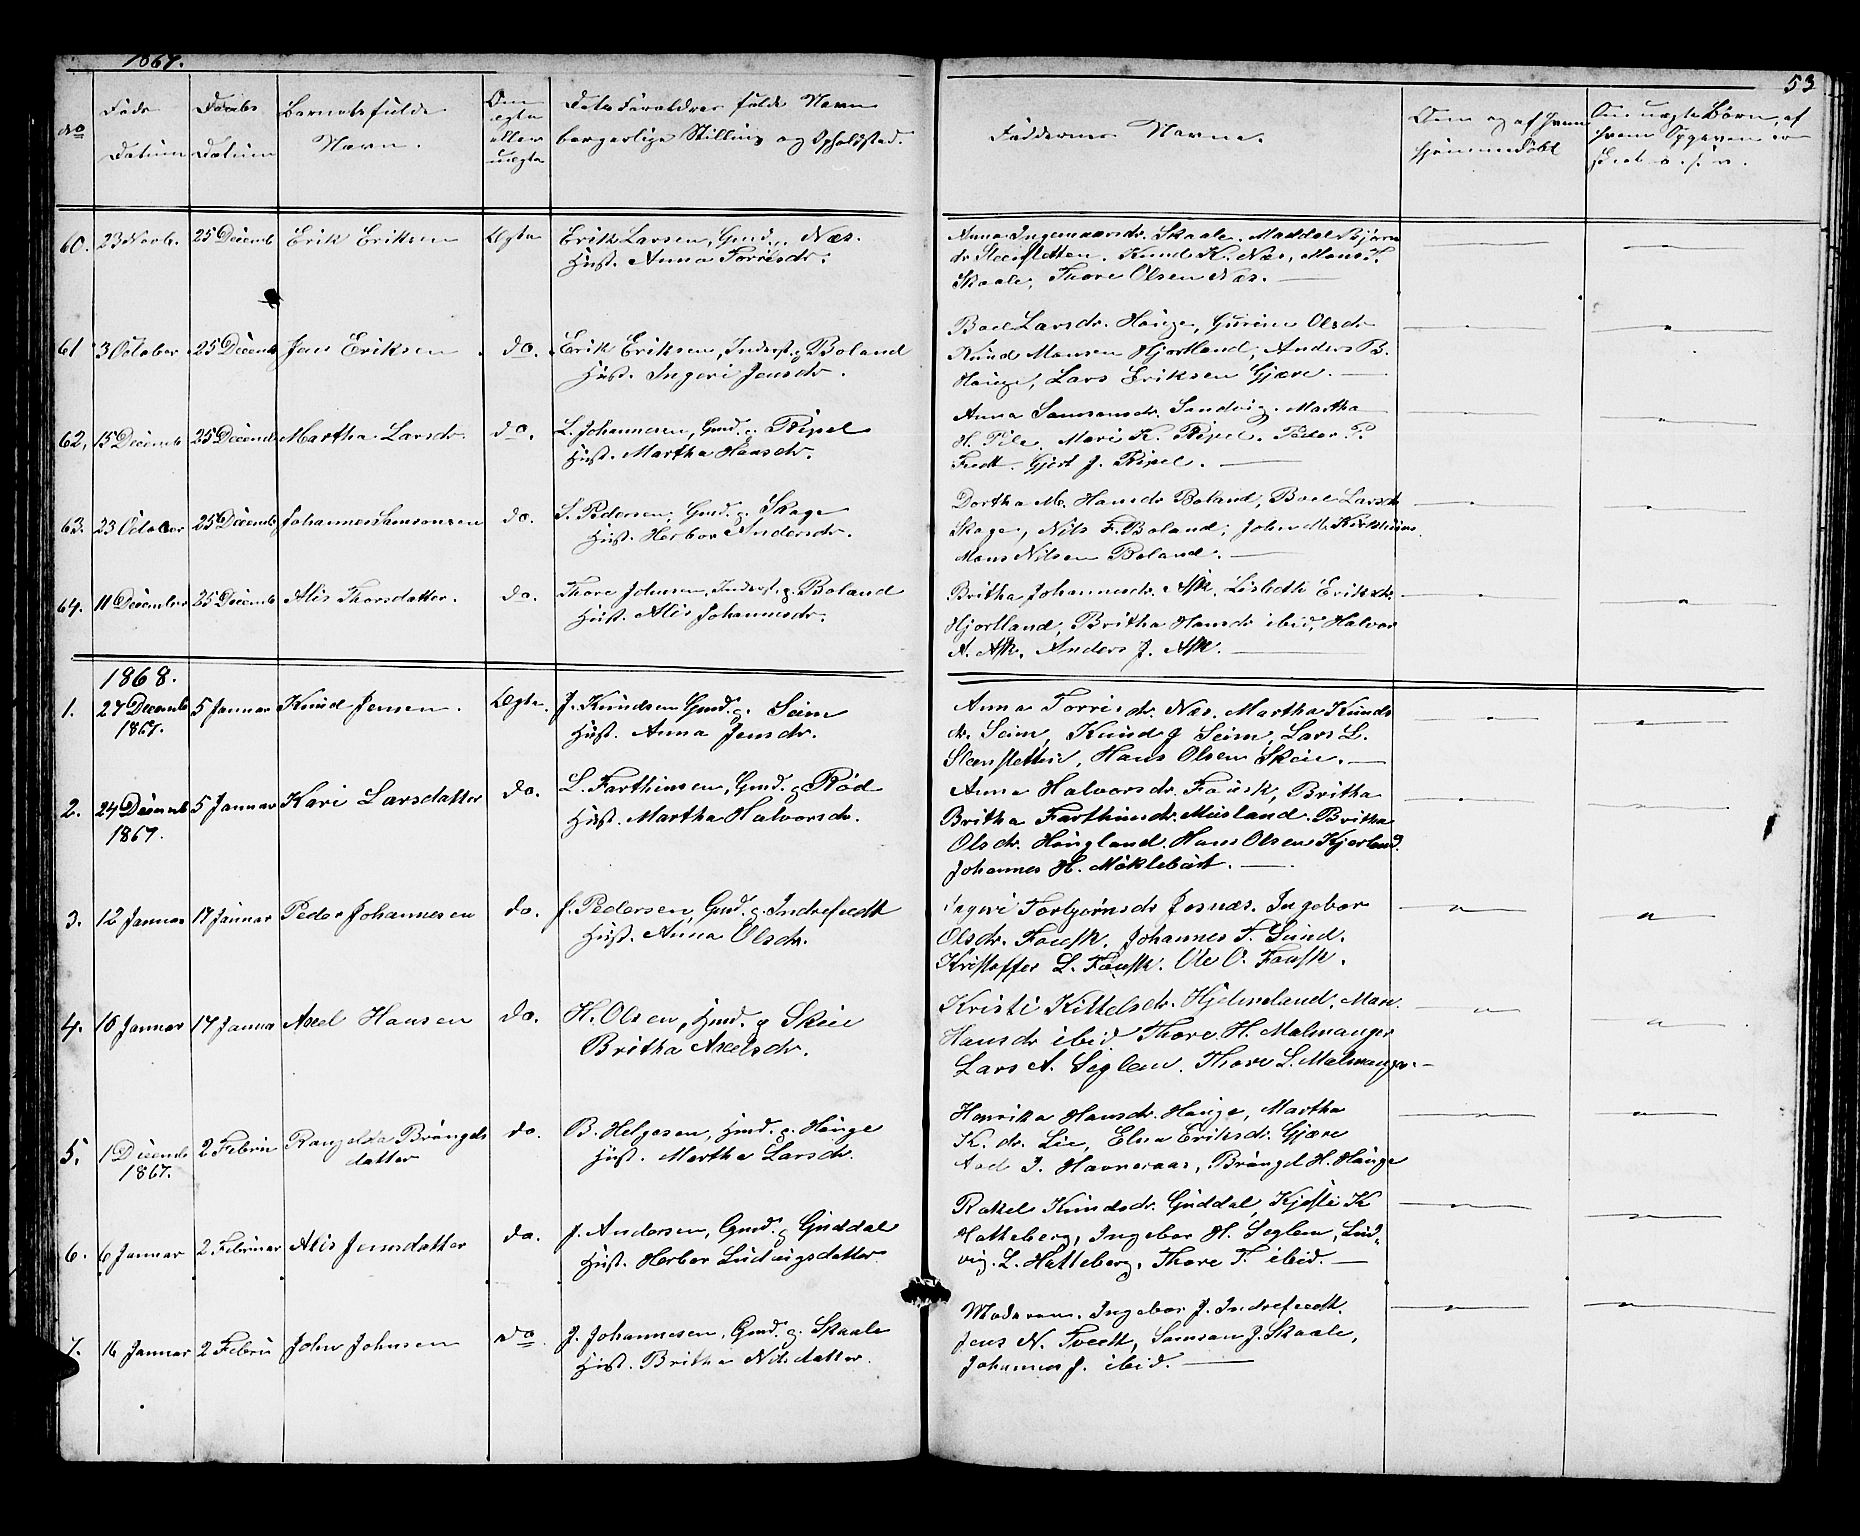 1867.
53
No
Føds
Datum
Daabs
Datum
Barnets fulde
Navn.
Om
ægte
eller
uægte
Dets Forældres fulde Navn
borgerlige Stilling og Opholdsted.
Faddernes Navne.
Om og af hvem
hjemmedøbt
Om uægte Børn, af
hvem Opgaven er
60. 23 Novb. 25 Decemb Erik Eriksen Ægte Erik Larsen, Gmd. Næs.
Hust. Anna Torrisdr.
Anna Ingemaarsdr. Skaale. Maddel Bjørn
dr Steenstetten. Knud K. Næs, Mons T.
Skaale, Thore Olsen Næs.
61 3 October 25 Decemb Jens Eriksen do. Erik Eriksen, Inderst. g Boland
Hust. Ingeri Jensdr.
Boel Larsdr. Houge, Gurine Olsdr
Knud Monsen Hjortland, Anders B.
Houge, Lars Eriksen Gjære.
62, 15 Decemb 25 Decemb Martha Larsdr. do. L. Johannesen, Gmd. g Ripel
Hust. Martha Hansdr.
Anna Samsonsdr. Sandvig. Martha
H. Pile. Mari K. Ripel. Peder P.
Tvedt. Gjert J. Ripel.
63. 23 October 25 Decemb Johannes Samsonsen do. S. Pedersen, Gmd. g. Skage
Hust. Herbor Andersdr.
Dortha M. Hansdr Boland, Boel Larsdr
Skage, Nils F. Boland, John M.
Mons Nilsen Boland.
64. 11 December 25 Decemb Alis Thorsdatter. do. Thore Johnsen, Inderst. g. Boland
Hust. Alis Johannesdr.
Britha Johannesdr. Ask, Lisbeth Eriksdr.
Hjortland, Britha Hansdr ibid, Halvor
A. Ask. Anders J. Ask.
1868.
1. 27 Decemb 5 Januar Knud Jensen. Ægte. J. Knudsen Gmd. g. Seim
1867. Hust. Anna Jensdr.
Anna Torrisdr. Næs. Martha Knuds
dr. Seim, Knud J Seim, Lars L.
Steenstetten, Hans Olsen Skeie.
2. 24 Decemb 5 Januar Kari Larsdatter do. L. Farthinsen, Gmd. g Rød
1867. Hust. Martha Halvorsdr.
Anna Halvorsdr. Fausk, Britha
Britha Farthinsdr. Musland. Britha
Olsdr. Haugland. Hans Olsen Kjerland.
Johannes H. Møklebust.
3. 12 Januar 17 Januar Peder Johannesen do. J. Pedersen, Gmd. g. Indretvedt
Hust. Anna Olsdr.
Ingeri Torbjørnsdr Josnæs. Ingebor
Olsdr. Fausk. Johannes T. Sund.
Kristoffer L. Fausk. Ole O. Fausk.
4. 16 Januar 17 Janua Axel Hansen do. H. Olsen, Hmd. g Skeie
Britha Axelsdr.
Kristi Kittelsdr. Hjelmeland. Mari
Hansdr ibid Thore H. Malmanger
Lars A. Seglem. Thore L. Malmanger.
5. 1 Decemb 2 Febru Rangelda Brôngels do. B. Helgesen, Hmd. g. Houge
1867. datter Hust. Martha Larsdr.
Henrika Hansdr. Houge, Martha
K. dr. Lie, Elna Eriksdr. Gjære
I. Havneraas, Brôngel H. Houge
6. 6 Januar 2 Februar Alis Jensdatter do. J. Andersen, Gmd. g Guddal
Hust. Herbor Ludvigsdatter
Rakel Knudsdr. Guddal, Kjesti K
Hatteberg, Ingebor H. Seglem, Lud-
vig. L. Hatteberg. Thore T. ibid.
7. 16 Januar 2 Febru John Johnsen do. J. Johannesen, Gmd. g. Skaale
Hust. Britha Nilsdatter.
Moderen. Ingebor J. Indretvedt.
Jens N. Tvedt, Samson J. Skaale,
Johannes J. ibid.